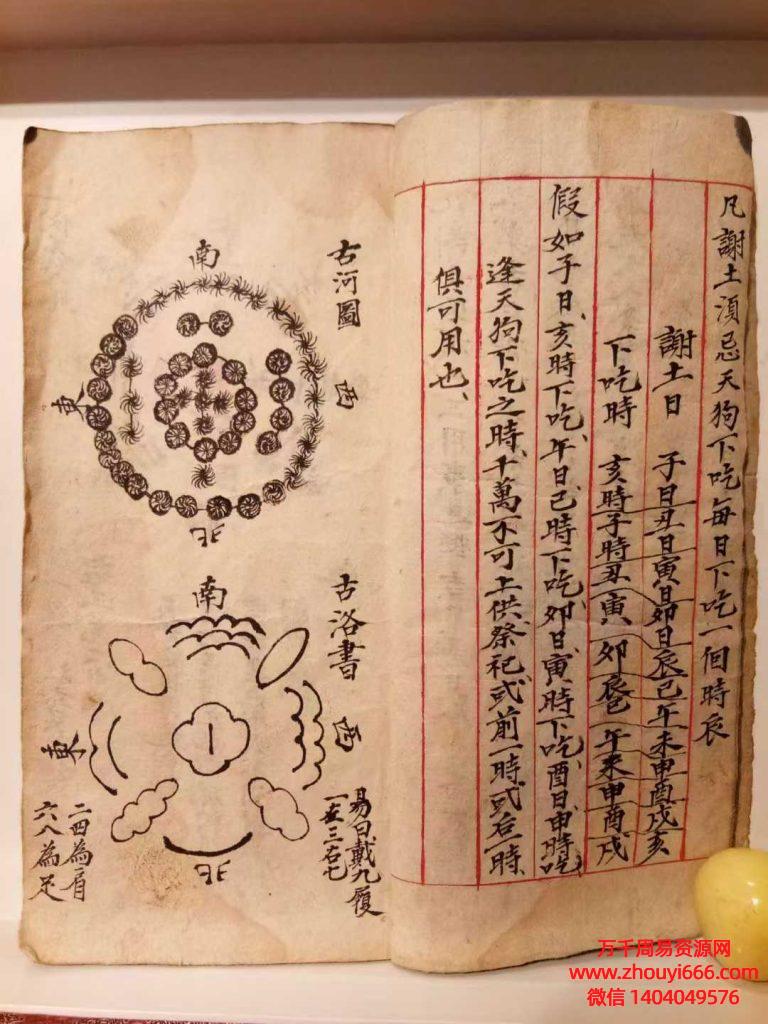 凡謝土須忌天狗下吃每日下吃一個時辰
謝土日 子日丑日寅日卯日辰巳午未申酉戌亥
下吃時 亥時子時丑寅卯辰巳午未申酉戌
假如子日、亥時下吃、午日、巳時下吃、卯日、寅時下吃、酉日、申時吃
逢天狗下吃之時、千萬不可上供祭祀或前一時或后一時
俱可用也、
古河圖
南
西
東
北
古洛書
南
西
東
北
易曰戴九履
一左三右七
二四為肩
六八為足
万千周易资源网
www.zhouyi666.com
微信 1404049576